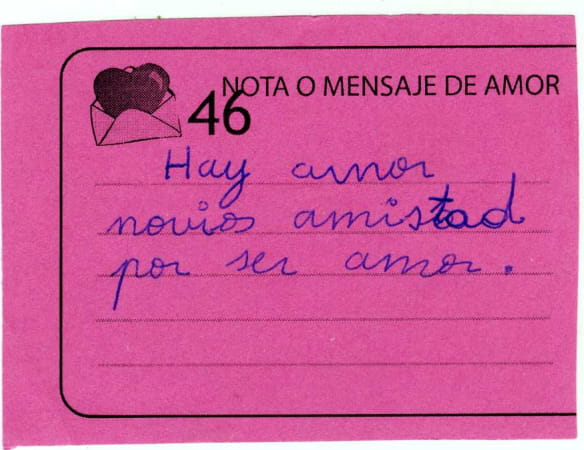 NOTA O MENSAJE DE AMOR
46
Hay amor
novios amistad
por ser amor.